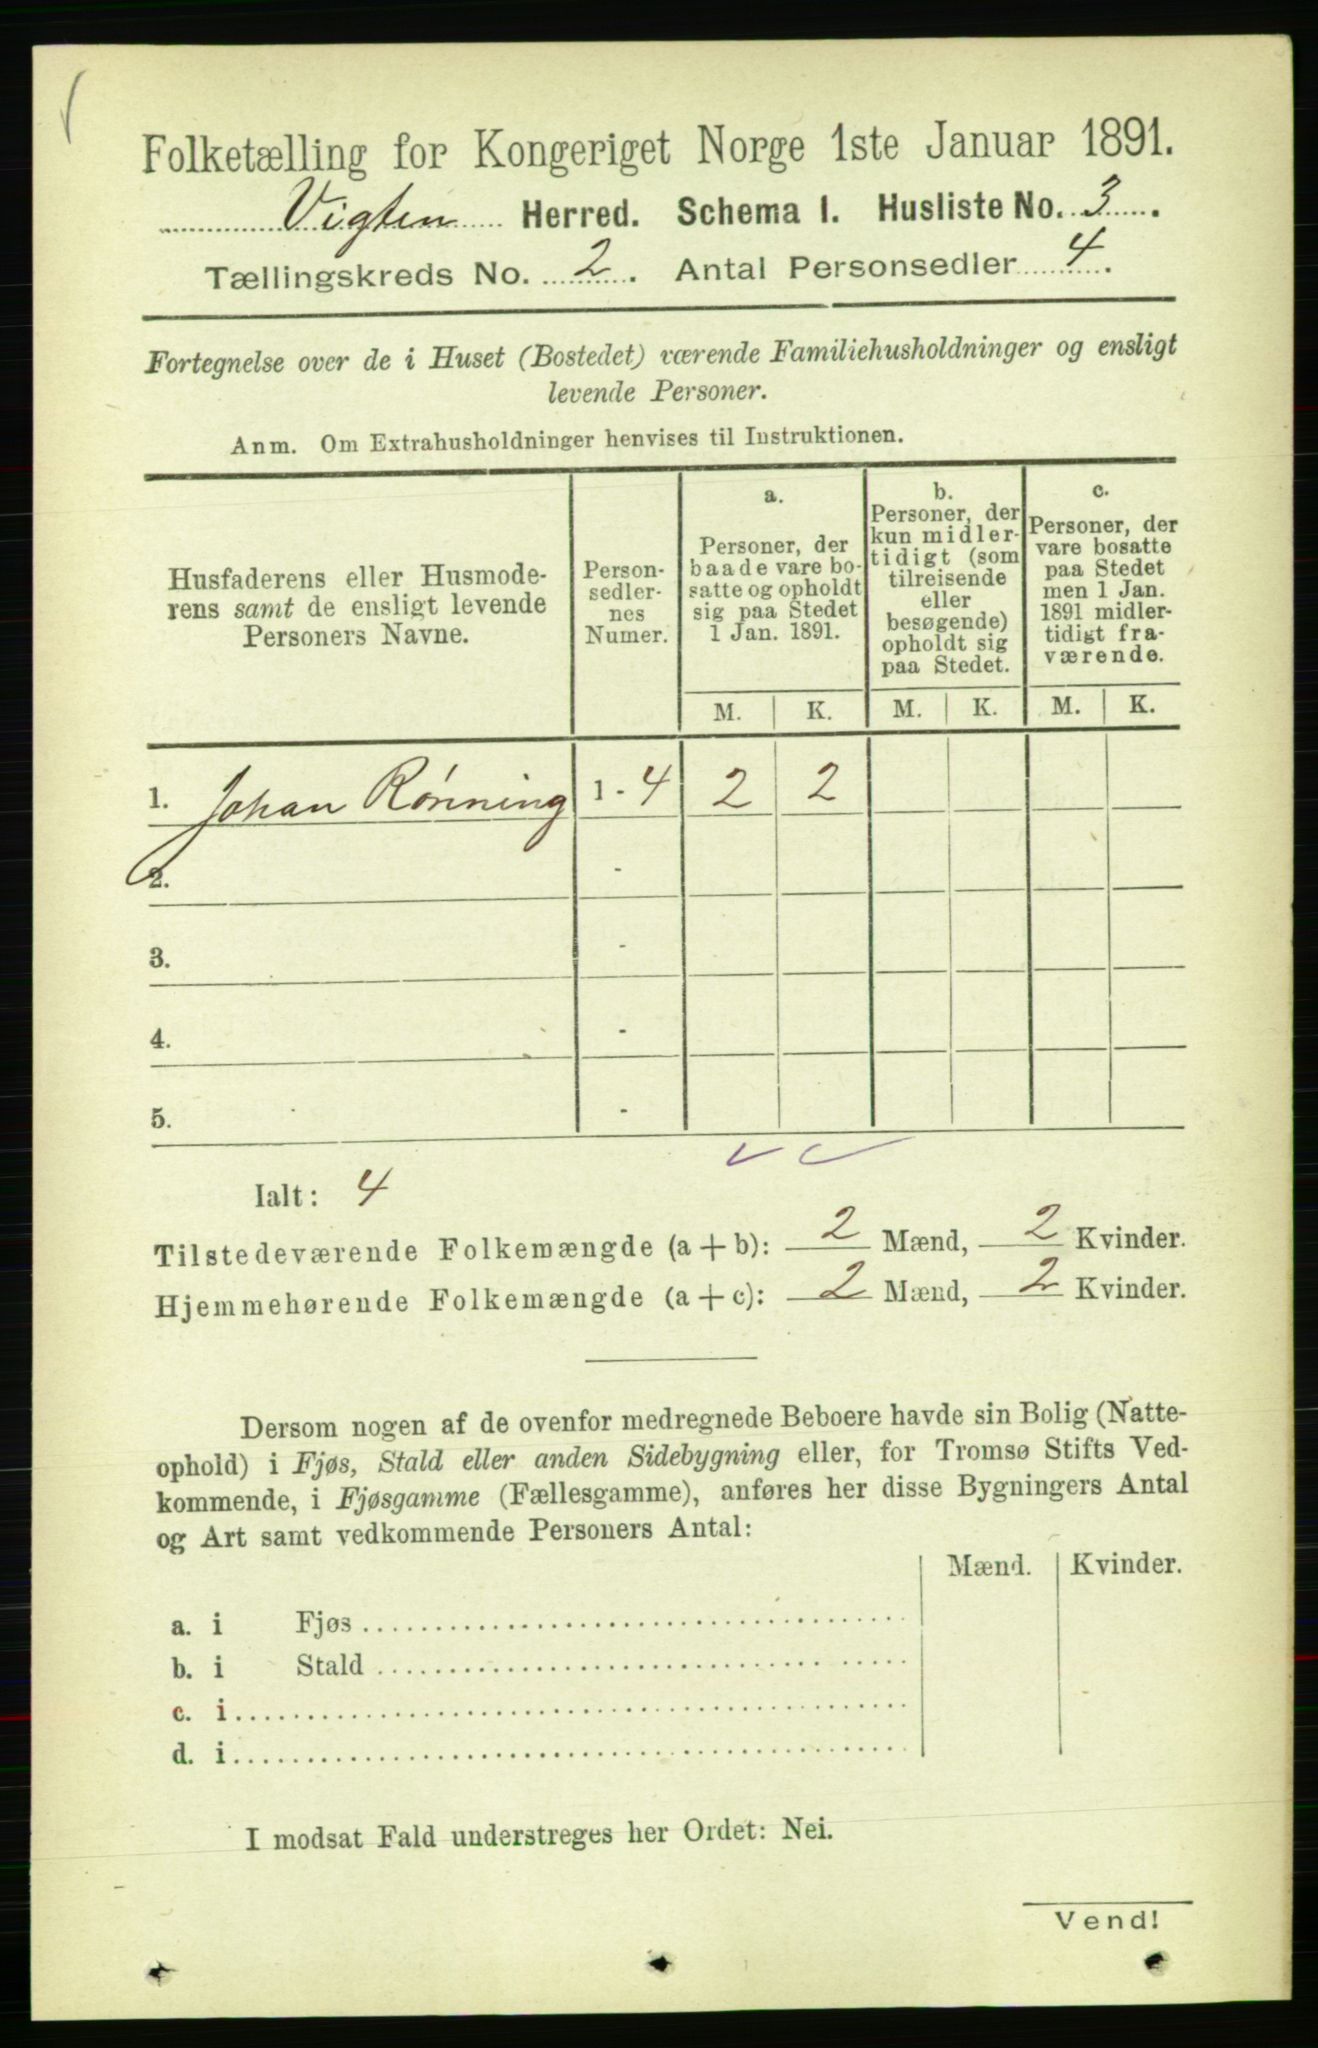 Folketælling for Kongeriget Norge 1ste Januar 1891.
Vigten Herred. Schema 1. Husliste No. 3.
Tællingskreds No. 2. Antal Personsedler 4.
Fortegnelse over de i Huset (Bostedet) værende Familiehusholdninger og ensligt
levende Personer.
Anm. Om Extrahusholdninger henvises til Instruktionen.
Husfaderens eller Husmode-
rens samt de ensligt levende
Personers Navne.
Person-
sedler-
nes
Numer.
a.
Personer, der
baade vare bo-
satte og opholdt
sig paa Stedet
1 Jan. 1891.
b.
Personer, der
kun midler-
tidigt (som
tilreisende
eller
besøgende)
opholdt sig
paa Stedet.
c.
Personer, der
vare bosatte
paa Stedet
men 1 Jan.
1891 midler-
tidigt fra-
værende.
M. K. M. K. M. K.
1. Johan Rönning 1 - 4 2 2
2. -
3. -
4. -
5. -
Ialt: 4
Tilstedeværende Folkemængde (a + b): 2 Mænd, 2 Kvinder.
Hjemmehørende Folkemængde (a + c): 2 Mænd, 2 Kvinder.
Dersom nogen af de ovenfor medregnede Beboere havde sin Bolig (Natte-
ophold) i Fjøs, Stald eller anden Sidebygning eller, for Tromsø Stifts Ved-
kommende, i Fjøsgamme (Fællesgamme), anføres her disse Bygningers Antal
og Art samt vedkommende Personers Antal:
Mænd. Kvinder.
a. i Fjøs
b. i Stald
c. i
d. i
I modsat Fald understreges her Ordet: Nei.
Vend!